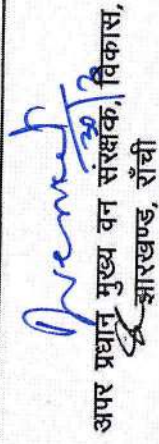 30/12
अपर प्रधान मुख्य वन संरक्षक, विकास,
झारखण्ड, राँची